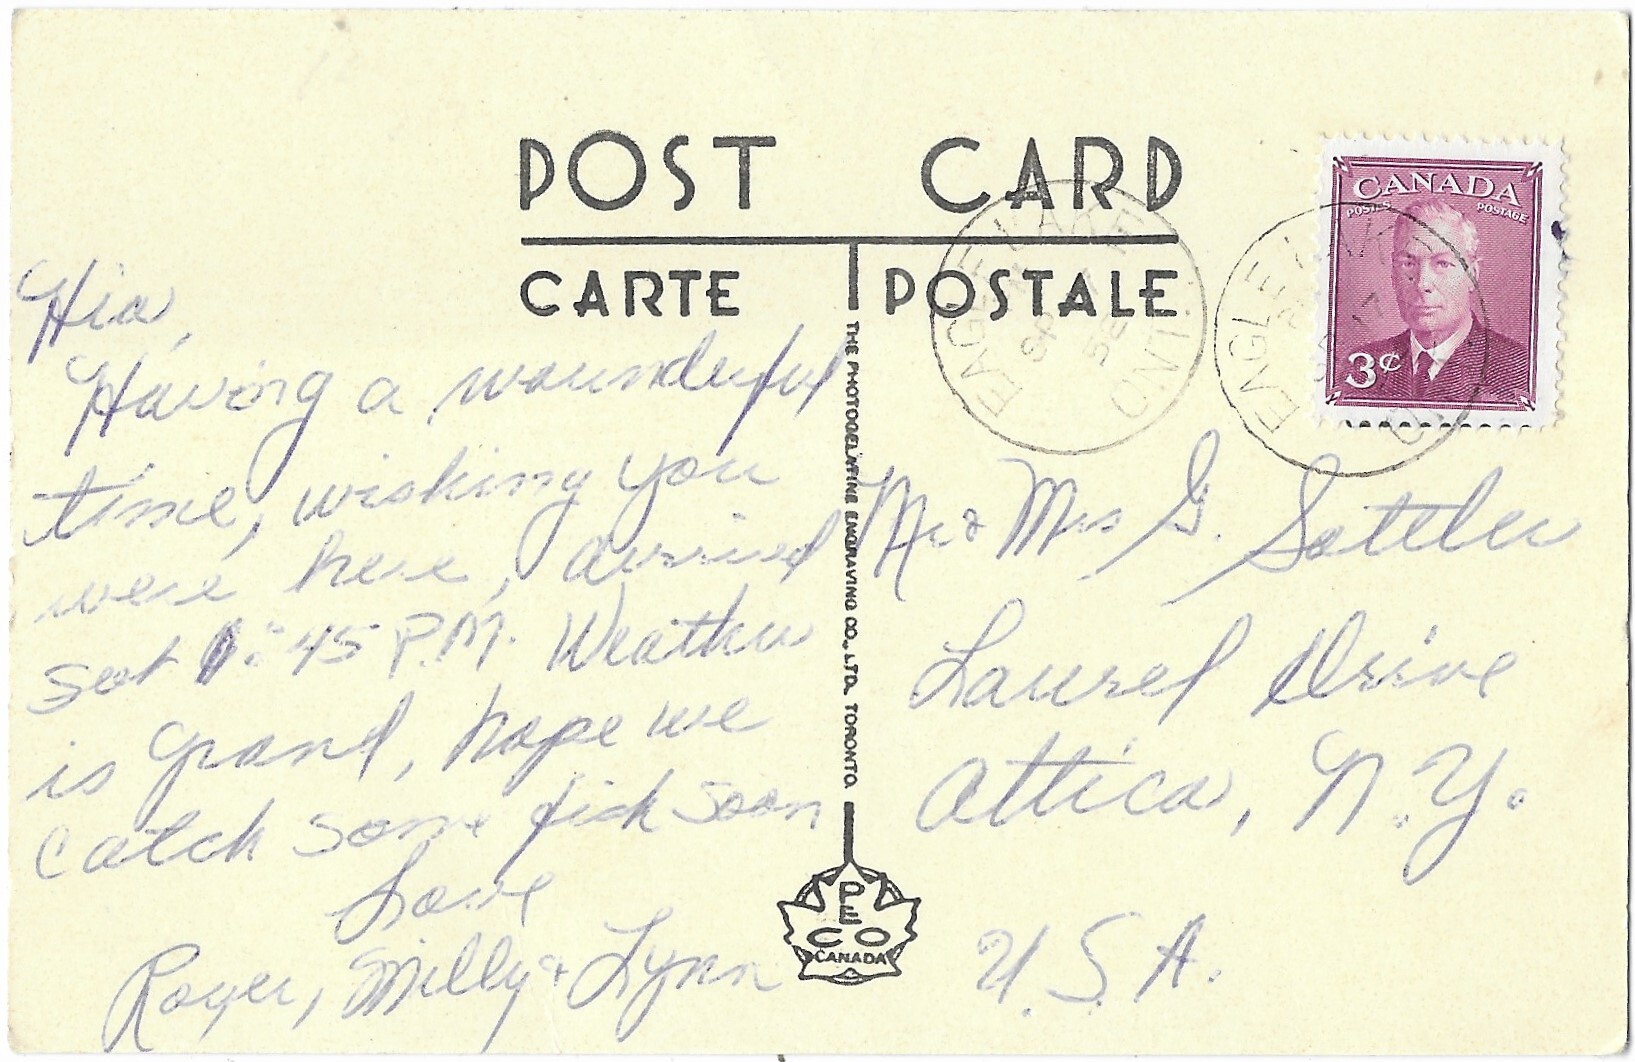 POST CARD
CARTE POSTALE
CANADA
POSTES POSTAGE
3¢
EAGLE LAKE
SP 17
52
ONT.
EAGLE LAKE
17
Hia,
Having a wounderful
time, wishing you
were here, arrived
Sat 1:45 P.M. Weather
is grand, hope we
catch some fish soon
Love
Roger, Milly & Lynn
THE PHOTOGELATINE ENGRAVING CO., LTD. TORONTO.
PECO
CANADA
Mr & Mrs G. Sattler
Laurel Drive
Attica, N.Y.
U.S.A.